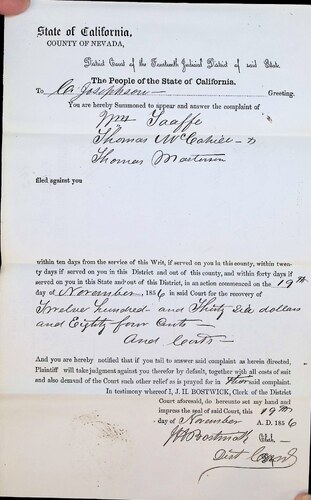 State of California,
COUNTY OF NEVADA,
District Court of the Fourteenth Judicial District of said State.
The People of the State of California.
To C. Josephson Greeting.
You are hereby Summoned to appear and answer the complaint of
Wm Taaffe
Thomas McCahill &
Thomas Masterson
filed against you
within ten days from the service of this Writ, if served on you in this county, within twenty days if served on you in this District and out of this county, and within forty days if
served on you in this State and out of this District, in an action commenced on the 19th
day of November, 1856 in said Court for the recovery of
Twelve hundred and Thirty Six dollars
and Eighty four Cents
and Costs
And you are hereby notified that if you fail to answer said complaint as herein directed,
Plaintiff will take judgment against you therefor by default, together with all costs of suit
and also demand of the Court such other relief as is prayed for in their said complaint.
In testimony whereof I, J. H. BOSTWICK, Clerk of the District
Court aforesaid, do hereunto set my hand and
impress the seal of said Court, this 19th
day of November A. D. 1856
J H Bostwick Clerk
Dist Court